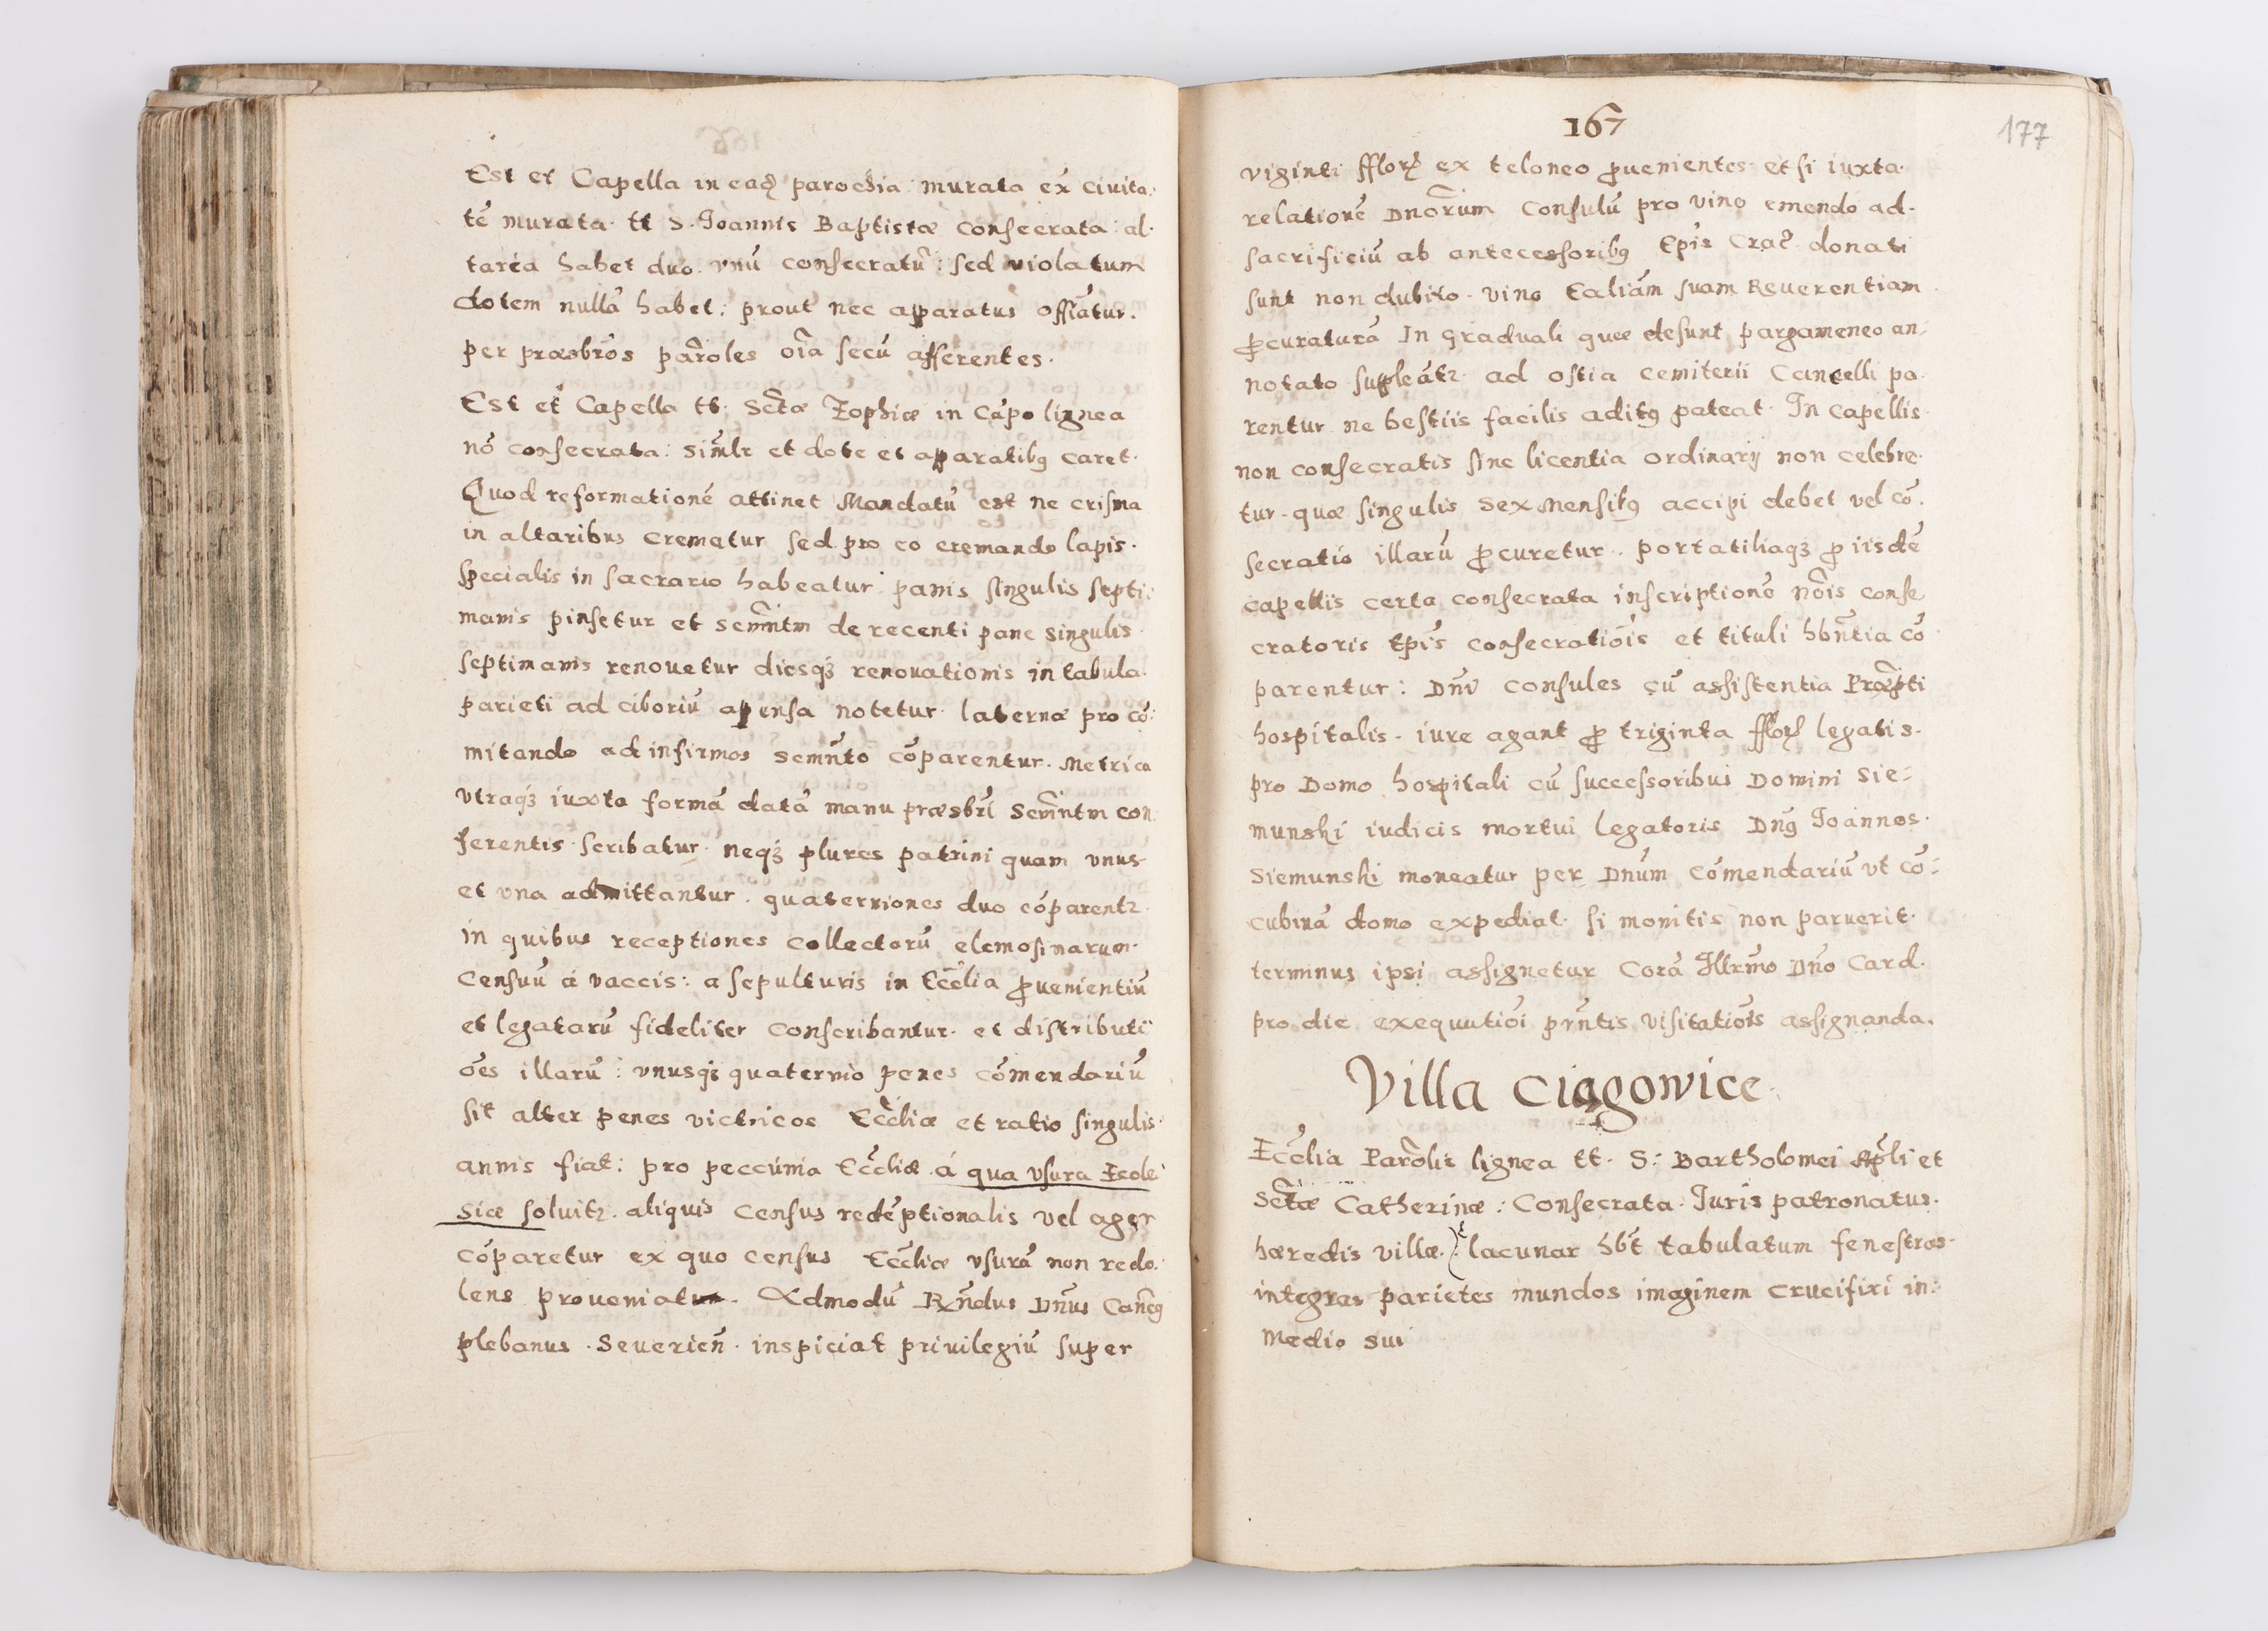 Est et Capella in eadȝ parochia murata ex Ciuita.
tē murata. tt S. Joannis Baptistæ Consecrata: al.
taria habet duo. vnū consecratū: sed violatum
dotem nullā habet: prout nec apparatus offiātur.
per præsbrōs parōles oīa secū afferentes.
Est et Capella tt. Sctæ Zophiæ in Cāpo lignea
nō consecrata: simlr et dote et apparatibȝ caret.
Quod reformationē attinet Mandatū est ne crisma
in altaribus cremetur sed pro eo cremando lapis.
specialis in sacrario habeatur panis singulis septi:
manis pinsetur et semīntm de recenti pane singulis
septimanis renouetur diesqȝ renouationis in tabula.
parieti ad ciboriū apensa notetur laternæ pro cō:
mitando ad infirmos semn̄to cōparentur. Metrica
vtraqȝ iuxta formā datā manu præsbrī Semīntm con.
ferentis scribatur. neqȝ plures patrini quam vnus
et vna admittantur. quaterniones duo cōparentz.
in quibus receptiones collectarū elemosinarum.
Censuū á vaccis: a sepulturis in Ecclīa ꝓuenientiū
et legatarū fideliter conscribantur. et distributi
ōes illarū: vnusqȝ quaternio penes cōmendariū
sit alter penes victricos Ecclīæ et ratio singulis.
annis fiat: pro peccúnia Ecclīæ á qua vsura Eccle
siæ soluitz. aliquis Census redēptionalis vel ager
cōparetur ex quo census Ecclīæ vsurā non redo.
lens proueniat. Admodū Rn̄dus Dn̄us Canc̄g
plebanus. Seuerien̄. inspiciat priuilegiū super
167
177
viginti fflorȝ ex teloneo ꝓuenientes et si iuxta.
relationē Dnōrum Consulū pro vino emendo ad.
sacrificiū ab antecessoribȝ Epīs Crac̄. donati
sunt non dubito. vino Ealiām suam Reuerentiam
ꝓcuraturā In graduali quæ desunt pargameneo an:
notato suppleātz. ad ostia cemiterii Cancelli pa.
rentur ne bestiis facilis aditȝ pateat. In Capellis
non consecratis sine licentia ordinarij non celebre.
tur. quæ singulis sex Mensibȝ accipi debet vel cō.
secratio illarū ꝓcuretur. portatiliaqȝ ꝓ iisdē
capellis certa consecrata inscriptionē nōis conse
cratoris Epīs consecratiōis et tituli hbn̄tia cō
parentur: Dn̄i Consules cū assistentia Præpti
hospitalis. iure agant ꝓ triginta fflorȝ legatis.
pro Domo hospitali cū successoribus Domini Sie=
munski iudicis mortui legatoris Dn̄ȝ Joannes.
Siemunski moneatur per Dn̄um Cōmendariū vt cō=
cubinā domo expediat. si monitis non paruerit.
terminus ipsi assignetur Corā Illrmo Dn̄o Card.
pro die exequutiōi prn̄tis visitatiōis assignanda.
Villa Ciągowice.
Ecclīa Parōlis lignea tt. S: Bartholomei Apl̄i et
Sctæ Catherinæ: Consecrata. Juris patronatus.
hæredis villæ. lacunar hbt̄ tabulatum fenestras.
integras parietes mundos imaginem Crucifixi in:
Medio sui